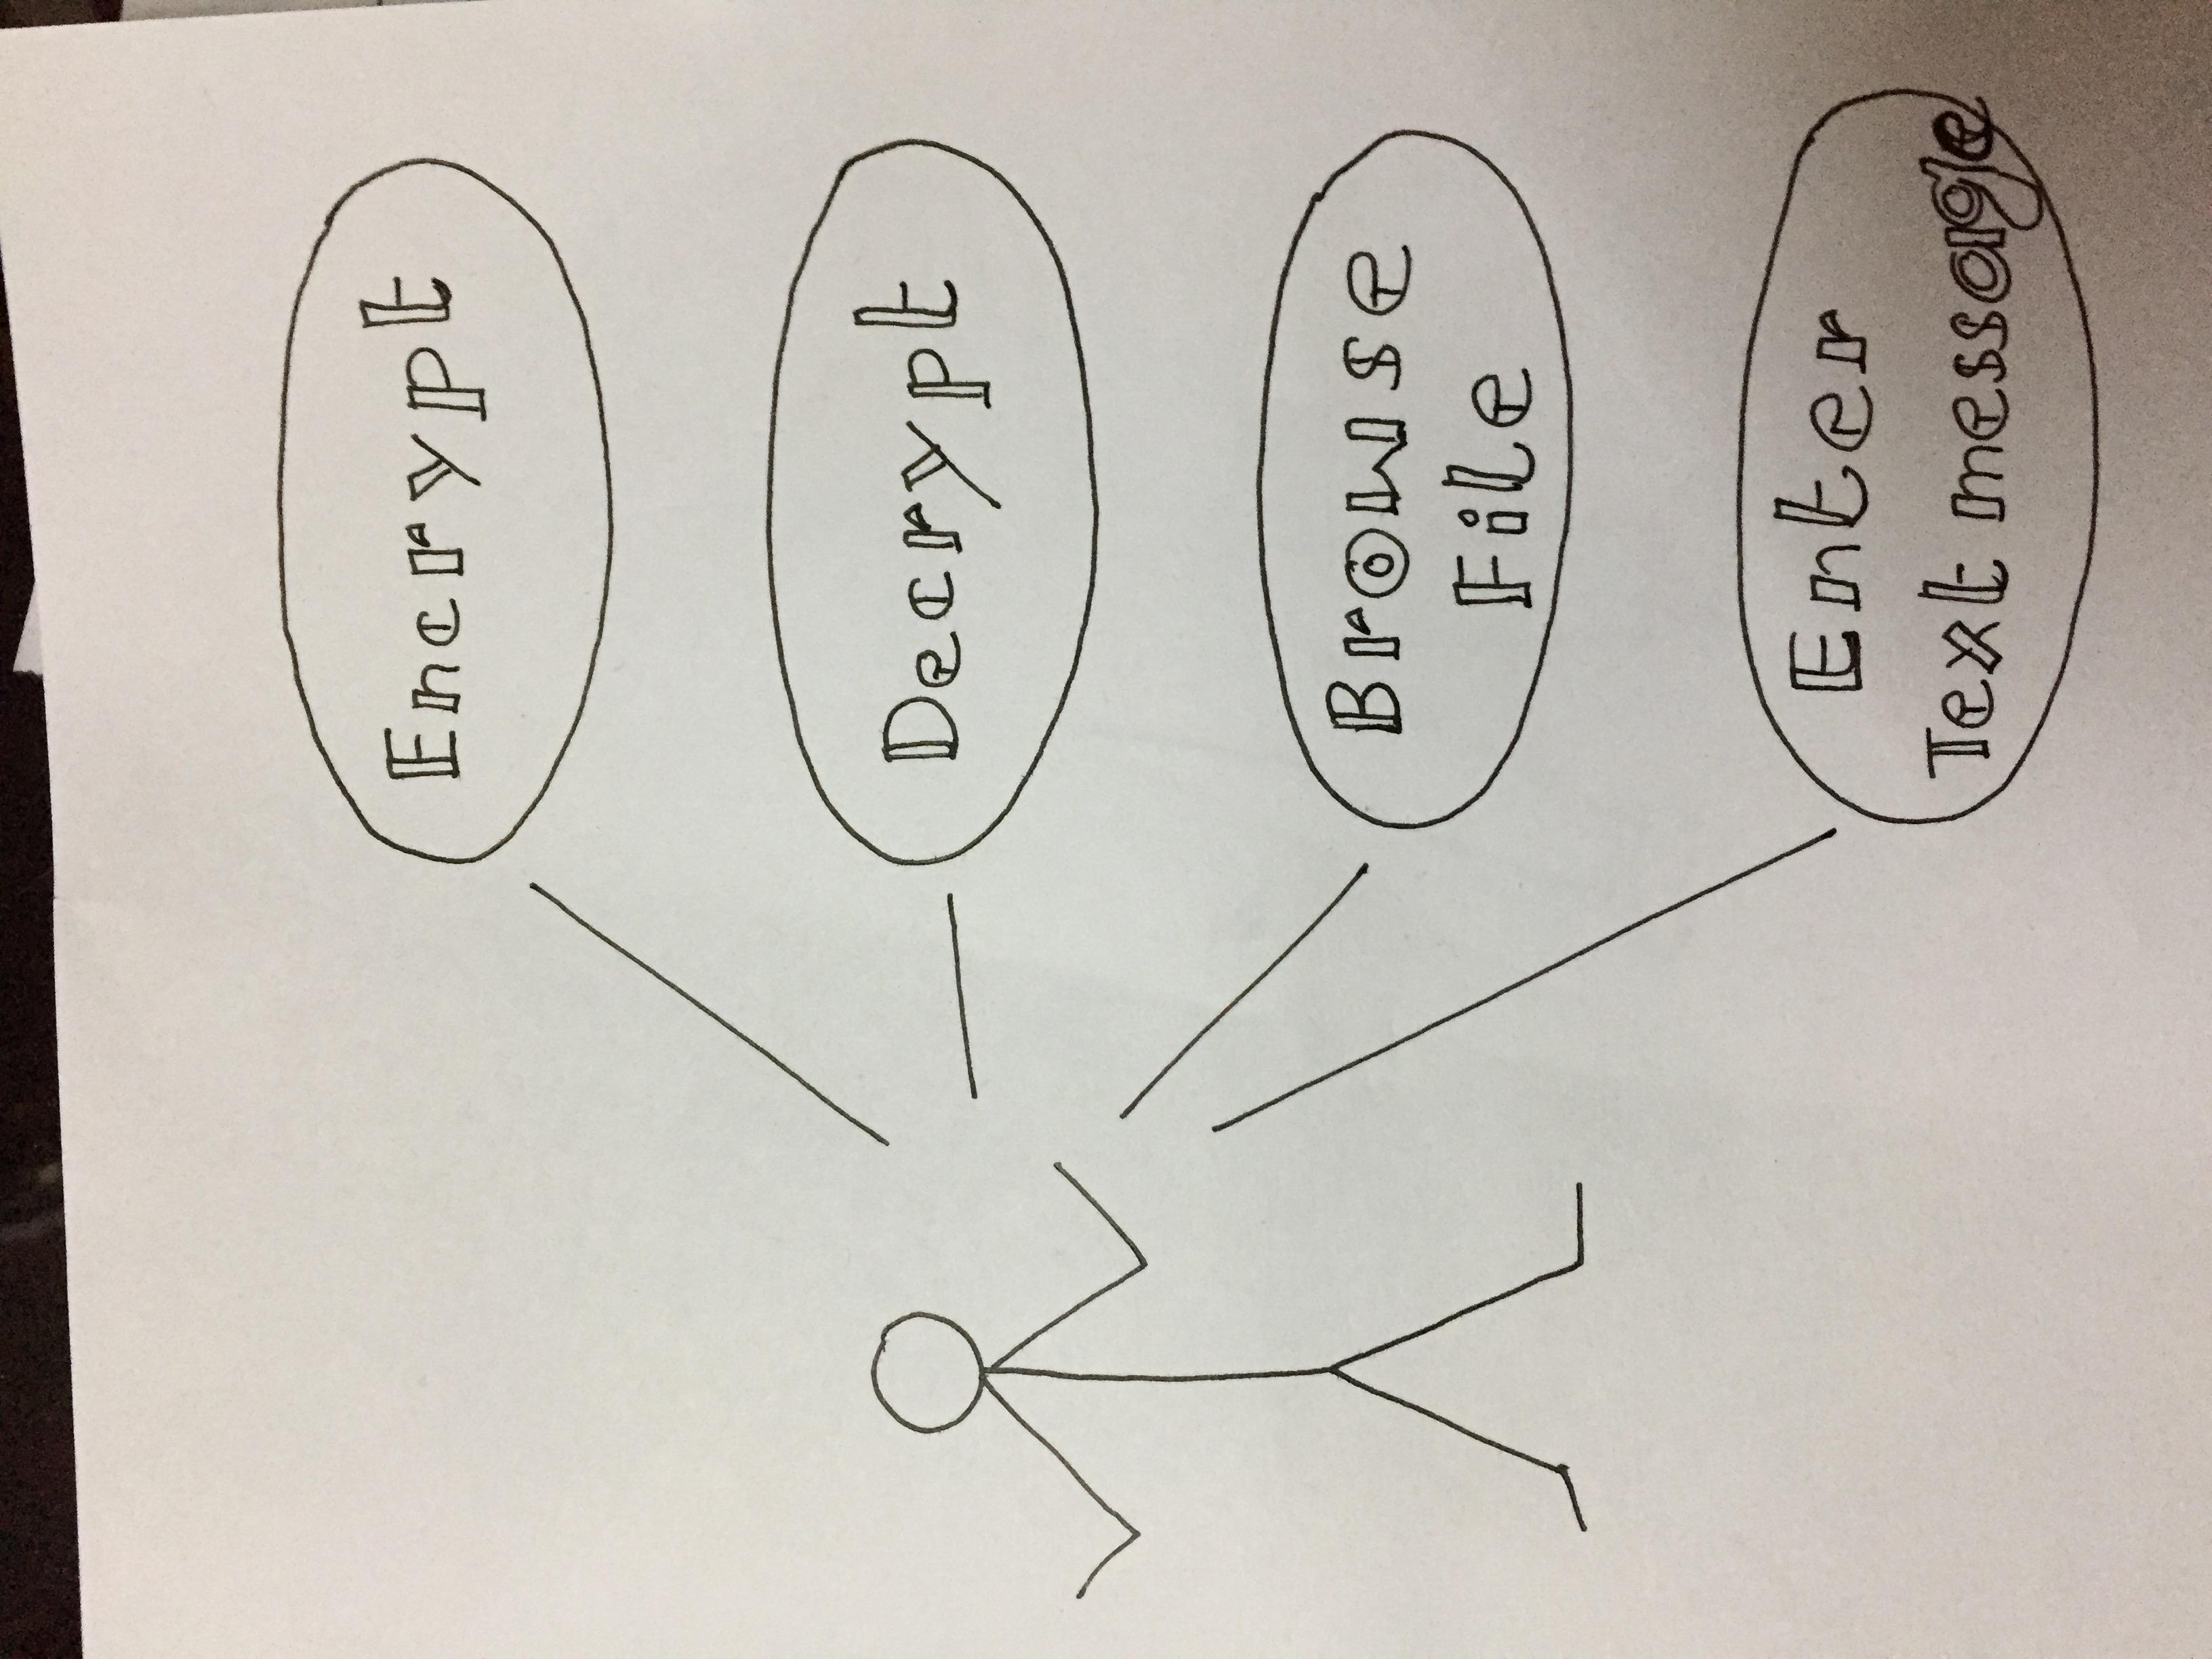 Encrypt
Decrypt
Browse
File
Enter
Text message